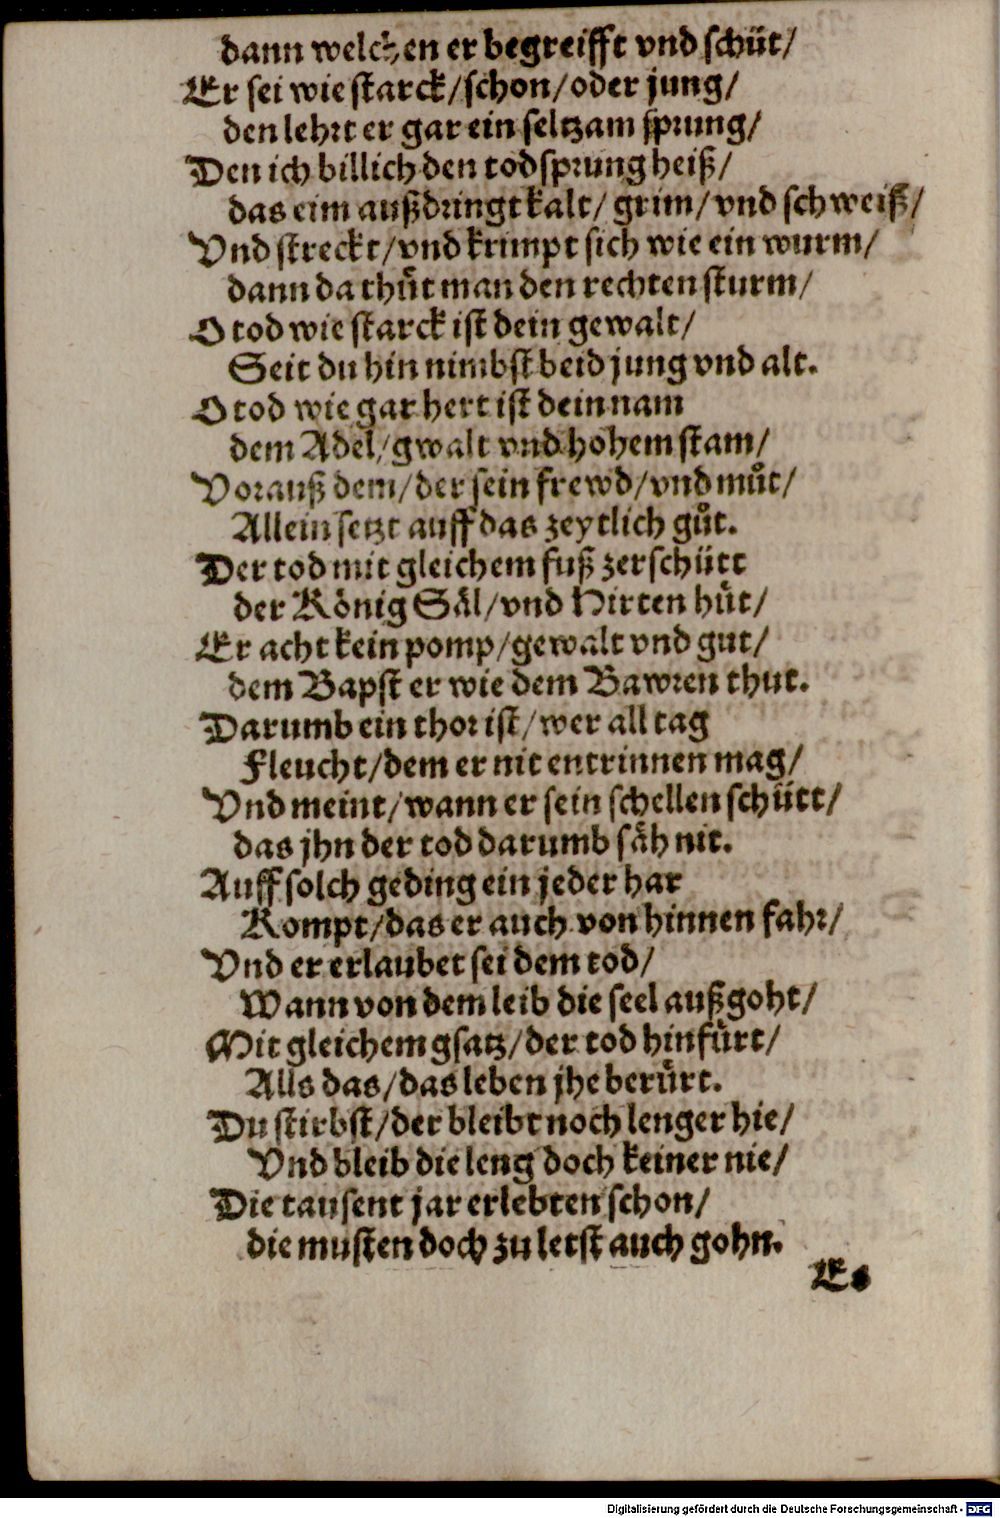 dann welchen er begreifft vnd schüt/
Er sei wie starck/schon/oder jung/
den lehrt er gar ein seltzam sprung/
Den ich billich den todsprung heiß/
das eim außdringt kalt/ grim/vnd schweiß/
Vnd streckt/vnd krimpt sich wie ein wurm/
dann da thůt man den rechten sturm/
O tod wie starck ist dein gewalt/
Seit du hin nimbst beid jung vnd alt.
O tod wie gar hert ist dein nam
dem Adel/gwalt vnd hohem stam/
Vorauß dem/der sein frewd/vnd můt/
Allein setzt auff das zeytlich gůt.
Der tod mit gleichem fuß zerschütt
der König Säl/vnd Hirten hüt/
Er acht kein pomp/gewalt vnd gut/
dem Bapst er wie dem Bawren thut.
Darumb ein thor ist/wer all tag
Fleucht/dem er nit entrinnen mag/
Vnd meint/wann er sein schellen schütt/
das jhn der tod darumb säh nit.
Auff solch geding ein jeder har
Kompt/das er auch von hinnen fahr/
Vnd er erlaubet sei dem tod/
Wann von dem leib die seel außgoht/
Mit gleichem gsatz/der tod hinfürt/
Alls das/das leben jhe berürt.
Du stirbst/der bleibt noch lenger hie/
Vnd bleib die leng doch keiner nie/
Die tausent jar erlebten schon/
die musten doch zu letst auch gohn.
Es
Digitalisierung gefördert durch die Deutsche Forschungsgemeinschaft - DFG